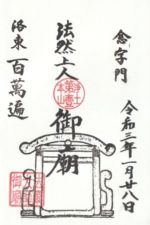 念字門
令和三年一月廿八日
法然上人
御廟
洛東 百萬遍